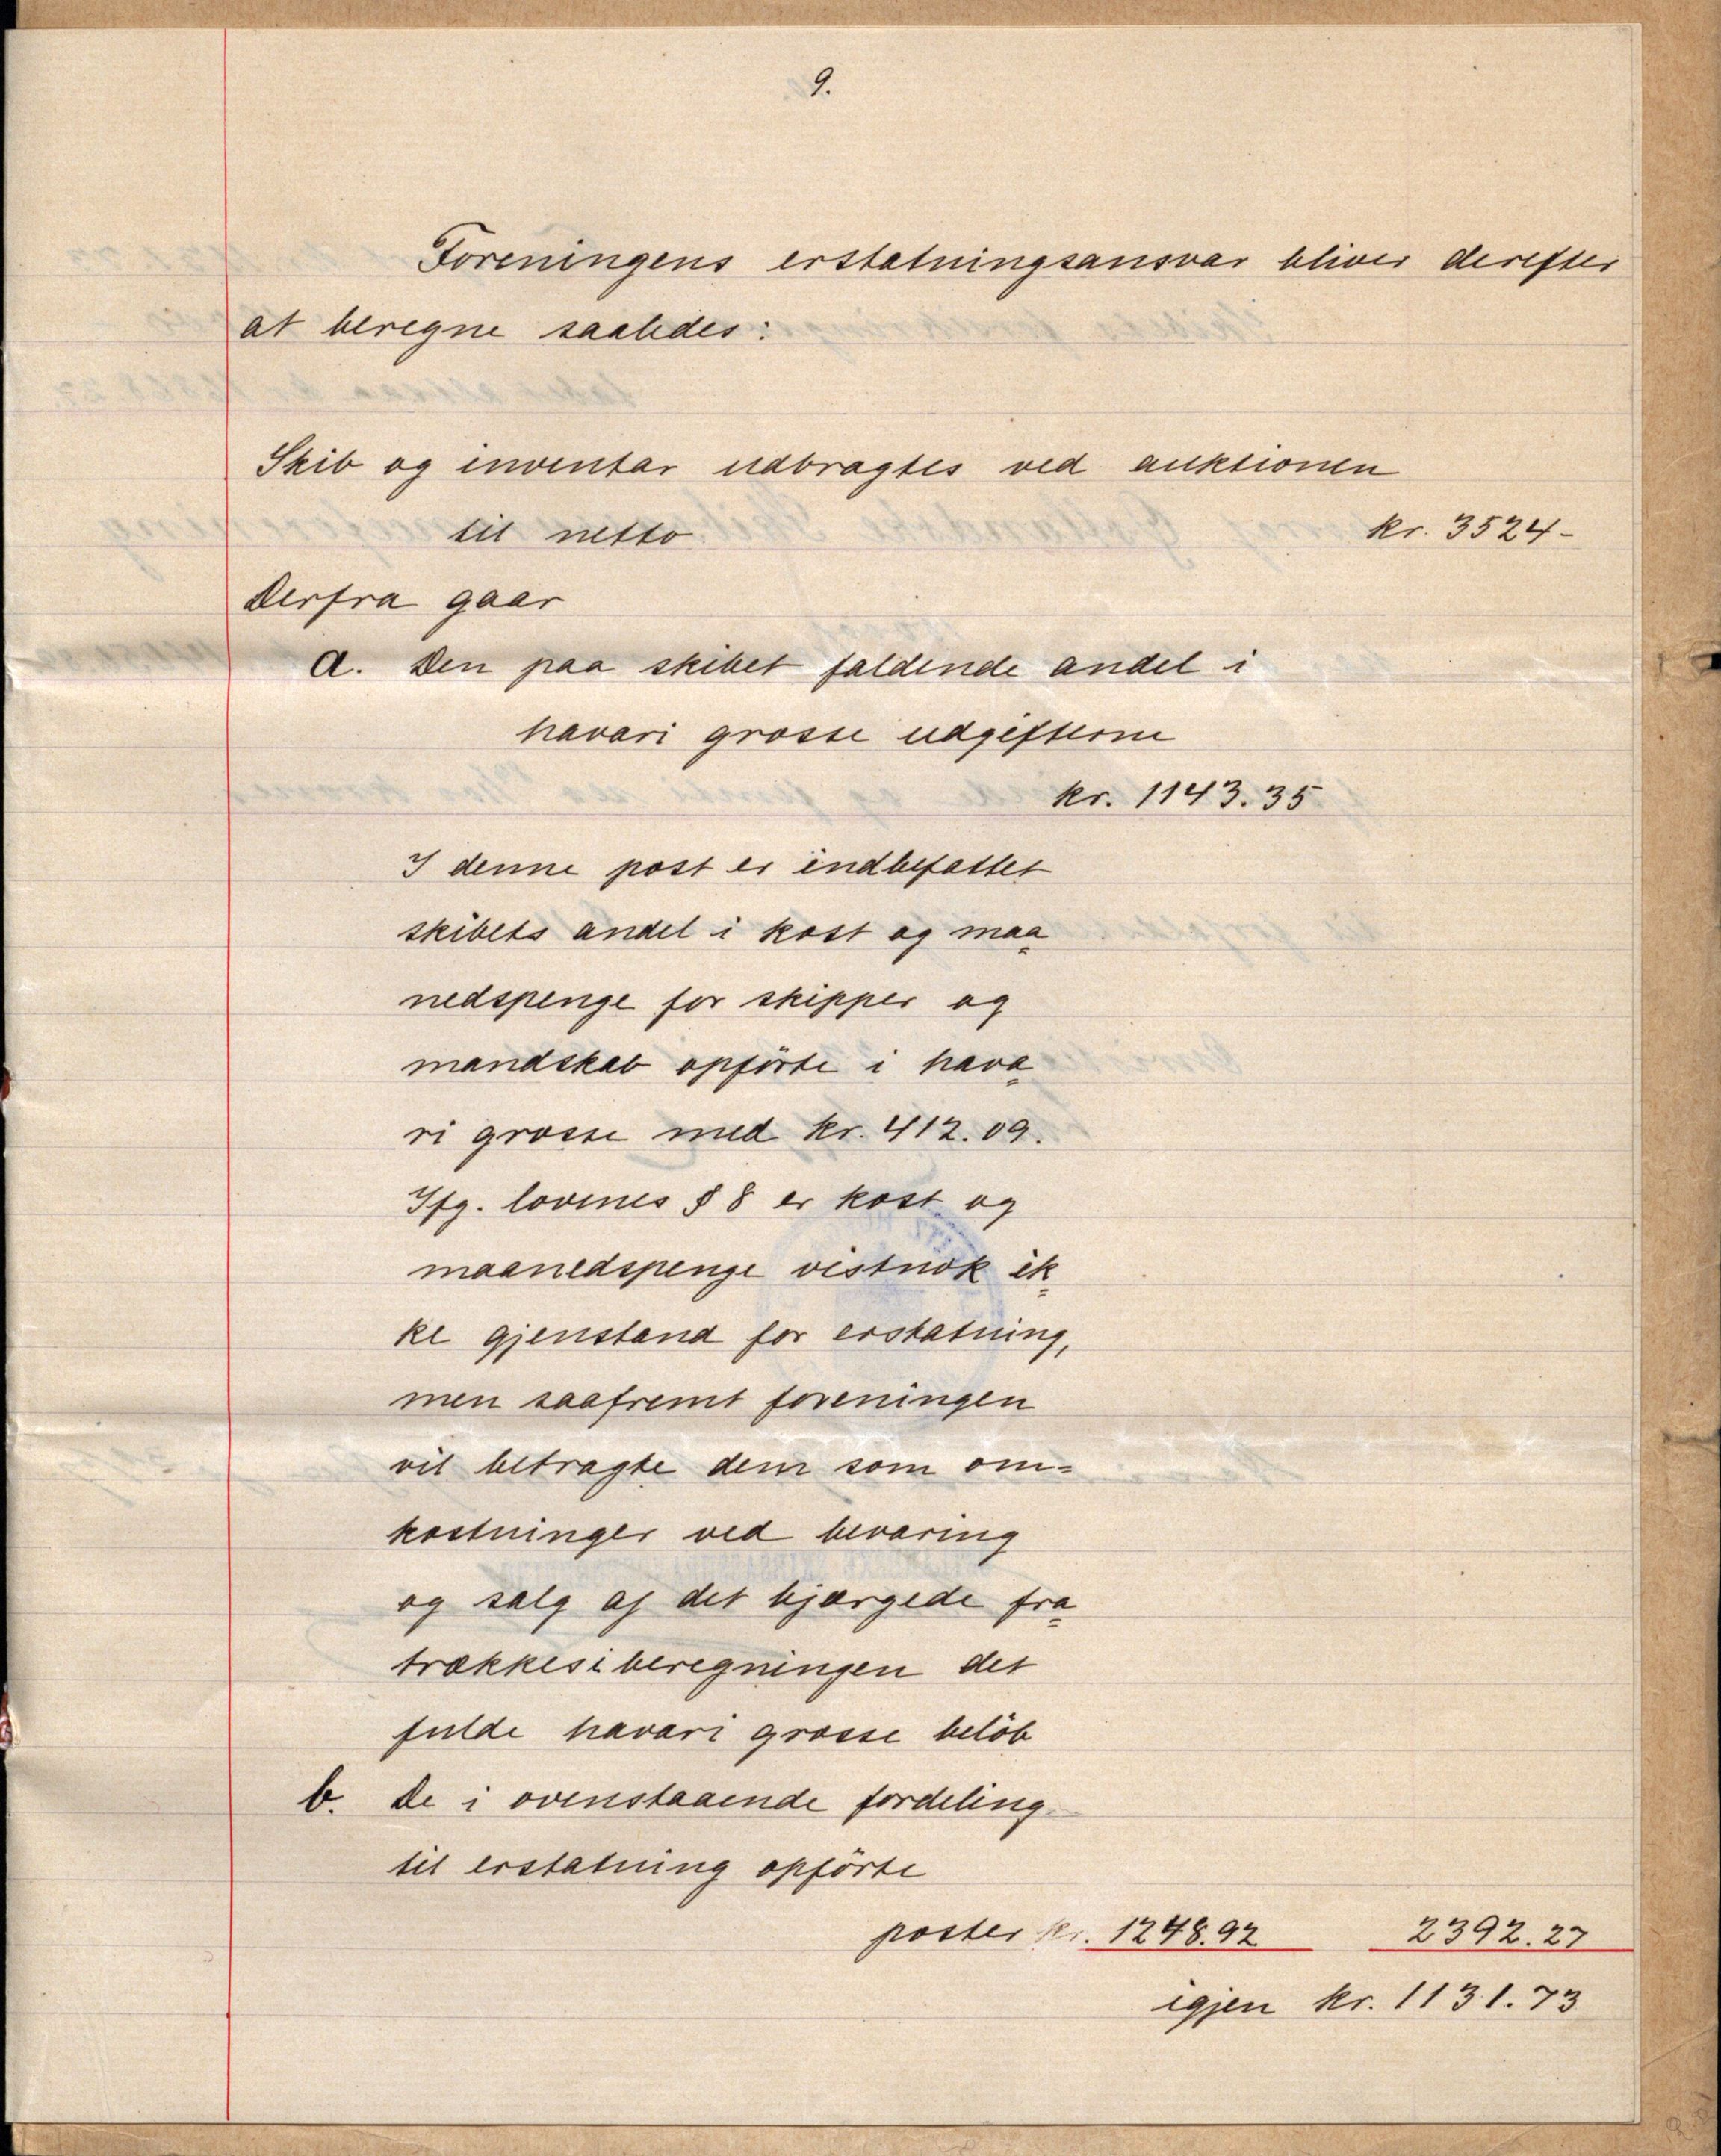 9.
Foreningens erstatningsansvar bliver derefter
at beregne saaledes:
Skib og inventar udbragtes ved auktionen
til netto kr. 3524-
Derfra gaar
a. Den paa skibet faldende andel i
havari grosse udgifterne
kr. 1143.35
I denne post er indbefattet
skibets andel i kost og maa
nedspenge for skipper og
mandskab opförte i hava
ri grosse med kr. 412.09.
Ifg. lovenes § 8 er kost og
maanedspenge vistnok ik
ke gjenstand for erstatning,
men saafremt foreningen
vil betragte dem som om=
kostninger ved bevaring
og salg af det bjærgede fra
trækkes i beregningen det
fulde havari grosse belöb
b. De i ovenstaaende fordeling
til erstatning opförte
poster kr. 1248.92 2392.27
igjen kr. 1131.73